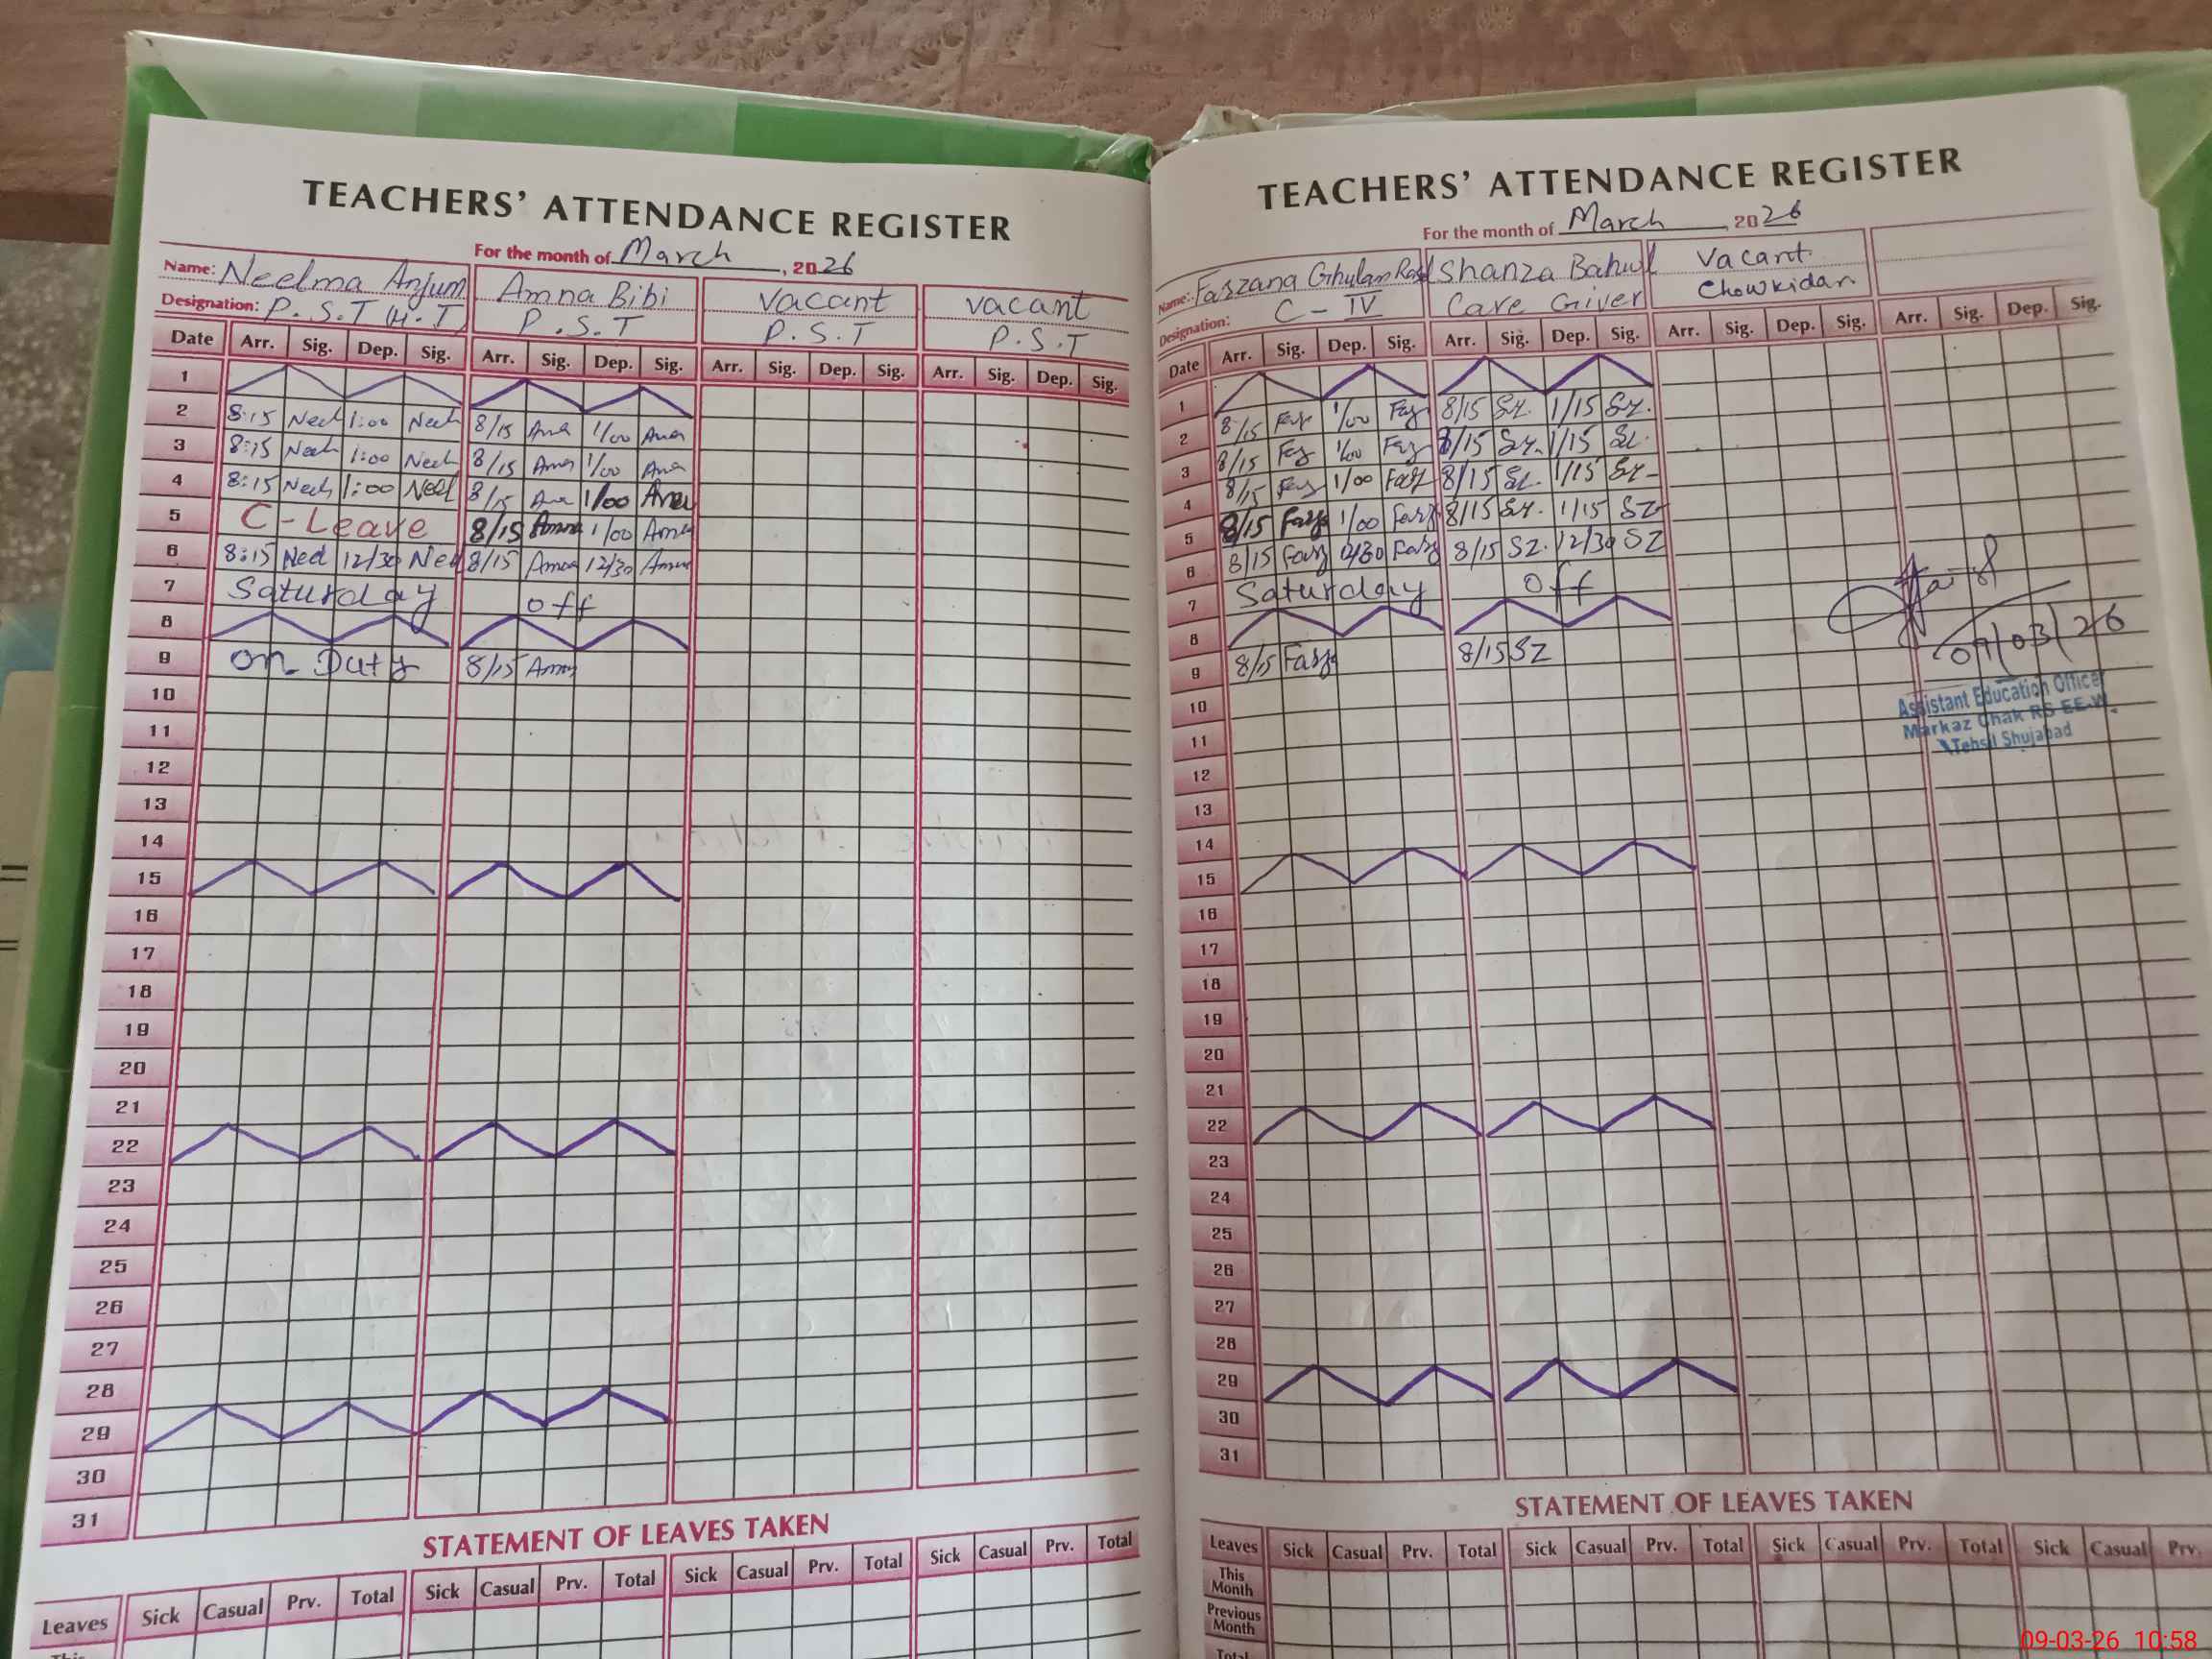 TEACHERS' ATTENDANCE REGISTER
For the month of March, 2026
Name: Neelma Anjum Amna Bibi vacant vacant
Designation: P.S.T (H.T) P.S.T P.S.T P.S.T
Date Arr. Sig. Dep. Sig. Arr. Sig. Dep. Sig. Arr. Sig. Dep. Sig. Arr. Sig. Dep. Sig.
1
2 8:15 Neel 1:00 Neel 8/15 Amna 1/00 Amna
3 8:15 Neel 1:00 Neel 8/15 Amna 1/00 Amna
4 8:15 Neel 1:00 Neel 8/15 Amna 1/00 Amna
5 C-Leave 8/15 Amna 1/00 Amna
6 8:15 Neel 12/30 Neel 8/15 Amna 12/30 Amna
7 Saturday off
8
9 on Duty 8/15 Amna
10
11
12
13
14
15
16
17
18
19
20
21
22
23
24
25
26
27
28
29
30
31
STATEMENT OF LEAVES TAKEN
Leaves Sick Casual Prv. Total Sick Casual Prv. Total Sick Casual Prv. Total Sick Casual Prv. Total
This
TEACHERS' ATTENDANCE REGISTER
For the month of March, 2026
Name: Farzana Ghulam Rasul Shanza Bahwl Vacant
Designation: C-IV Care Giver Chowkidar
Date Arr. Sig. Dep. Sig. Arr. Sig. Dep. Sig. Arr. Sig. Dep. Sig. Arr. Sig. Dep. Sig.
1
2 8/15 Farz 1/00 Farz 8/15 SZ. 1/15 SZ.
3 8/15 Farz 1/00 Farz 8/15 SZ. 1/15 SZ.
4 8/15 Farz 1/00 Farz 8/15 SZ. 1/15 SZ
5 8/15 Farz 1/00 Farz 8/15 SZ. 1/15 SZ
6 8/15 Farz 12/30 Farz 8/15 SZ. 12/30 SZ
7 Saturday off
8
9 8/15 Farz 8/15 SZ
09/03/26
Assistant Education Officer
Markaz Chak RS EE-W.
Tehsil Shujabad
10
11
12
13
14
15
16
17
18
19
20
21
22
23
24
25
26
27
28
29
30
31
STATEMENT OF LEAVES TAKEN
Leaves Sick Casual Prv. Total Sick Casual Prv. Total Sick Casual Prv. Total Sick Casual Prv.
This Month
Previous Month
Total
09-03-26 10:58